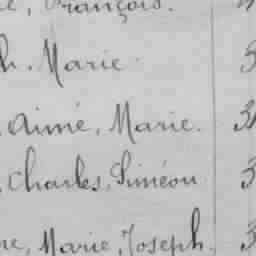 e, François.
h. Marie.
Aimé, Marie. 3
Charles, Siméon 3
ne, Marie, Joseph. 3